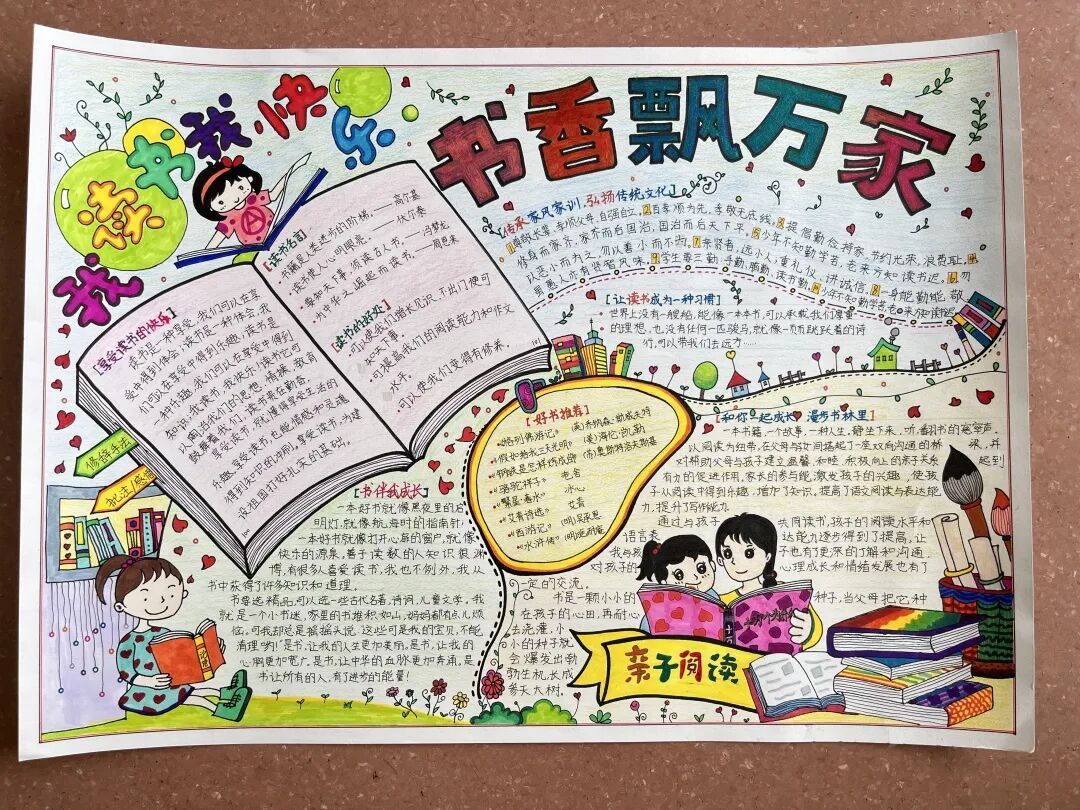 我读书我快乐
书香飘万家
[享受读书的快乐]
读书是一种享受,我们可以在享
受中得到体会,读书是一种体会,我
们可以在享受中得到乐趣,读书是
一种乐趣,我们可以在享受中得到
知识。我读书,我快乐!读书它可
陶冶我们的思想、情操,教育
鼓展着我们,读书是轻勤合,
享受读书,就懂得享受生活的
乐趣享受读书,也能情感和灵魂
得到知识的冲刷。享受读书,为建
设祖国打好扎实的基础。
[读书名言]
书籍是人类进步的阶梯。——高尔基
读书使人心明眼亮。——伏尔泰
要知天下事,须读古人书。——冯梦龙
为中华之崛起而读书。——周恩来
[读书的好处]
可以使我们增长见识,不出门便可
知天下事。
可提高我们的阅读能力和作文
水平。
可以使我们变得有修养。
[传承家风家训,弘扬传统文化]
1尊敬长辈,孝顺父母,自强自立。2百善孝为先,孝敬无底线。3提倡勤俭持家,节约光荣,浪费耻。
4修身而家齐,家齐而后国治,国治而后天下平。5少年不知勤学苦,老来方知读书迟。6勿
以恶小而为之,勿以善小而不为。7亲贤者,远小人;重礼仪,讲诚信。8一身能勤能敬,
愚人亦有贤智风味。9学生要三勤:手勤,脑勤,读书勤。
[让读书成为一种习惯]
世界上没有一艘船,能像一本本书,可以承载我们厚重
的理想,也没有任何一匹骏马,就像一页页跳跃着的诗
行,可以带我们去远方……
修辞手法
批注感悟
[书伴我成长]
一本好书就像黑夜里的启
明灯,就像航海时的指南针,
一本好书就像打开心扉的窗户,就像
快乐的源泉,善于读数的人知识很渊
博,有很多人喜爱读书,我也不例外,我从
书中获得了许多知识和道理。
书要选精品,可以选一些古代名著,诗词,儿童文学。我
就是一个小书迷,家里的书堆积如山,妈妈都有点儿烦
恼。可我却总是摇摇头说,这些可是我的宝贝,不能
清理哟!"是书,让我的人生更加美丽,是书,让我的
心胸更加宽广,是书,让中华的血脉更加奔涌,是
书让所有的人,有了进步的能量!
[好书推荐]
·《格列佛游记》(英)乔纳森·斯威夫特
·《假如给我三天光明》(美)海伦·凯勒
·《钢铁是怎样炼成的》(苏)奥斯特洛夫斯基
·《骆驼祥子》老舍
·《繁星·春水》冰心
·《艾青诗选》艾青
·《西游记》(明)吴承恩
·《水浒传》(明)施耐庵
[和你一起成长,漫步书林里]
一本书籍,一个故事,一种人生,静坐下来,听,翻书的窸窣声。
以阅读为纽带,在父母与女间搭起了一座双向沟通的桥梁,并
对帮助父母与孩子建立温馨、和睦、积极向上的亲子关系起到
有力的促进作用,家长的参与能,激发孩子的兴趣,使孩
子从阅读中得到乐趣,增加了知识,提高了语文阅读与表达能
力,提升写作能力。
通过与孩子共同读书,孩子的阅读水平和
语言表达能力逐步得到了提高,让
我与孩子也有更深的了解和沟通,
对孩子的心理成长和情绪发展也有了
一定的交流。
书是一颗小小的种子,当父母把它种
在孩子的心田,再耐心
去浇灌,小
小的种子就
会爆发出勃
勃生机,长成
参天大树。
亲子阅读